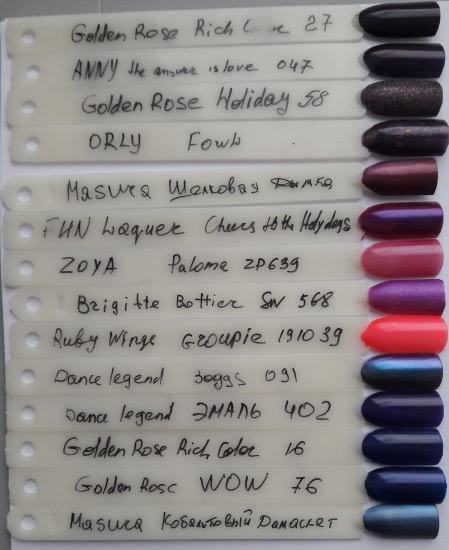 Golden Rose Rich 27
ANNY the answer is love 047
Golden Rose Holiday 58
ORLY Fowl
Masura Шелковая Дымка
FUN Laquer Cheers to the Holydays
ZOYA Paloma ZP639
Brigitte Bottier SN 568
Ruby Wings GROUPIE 191039
Dance legend Boggs 091
Dance legend ЭМАЛЬ 402
Golden Rose Rich Color 16
Golden Rose WOW 76
Masura Кобальтовый Дамаскат